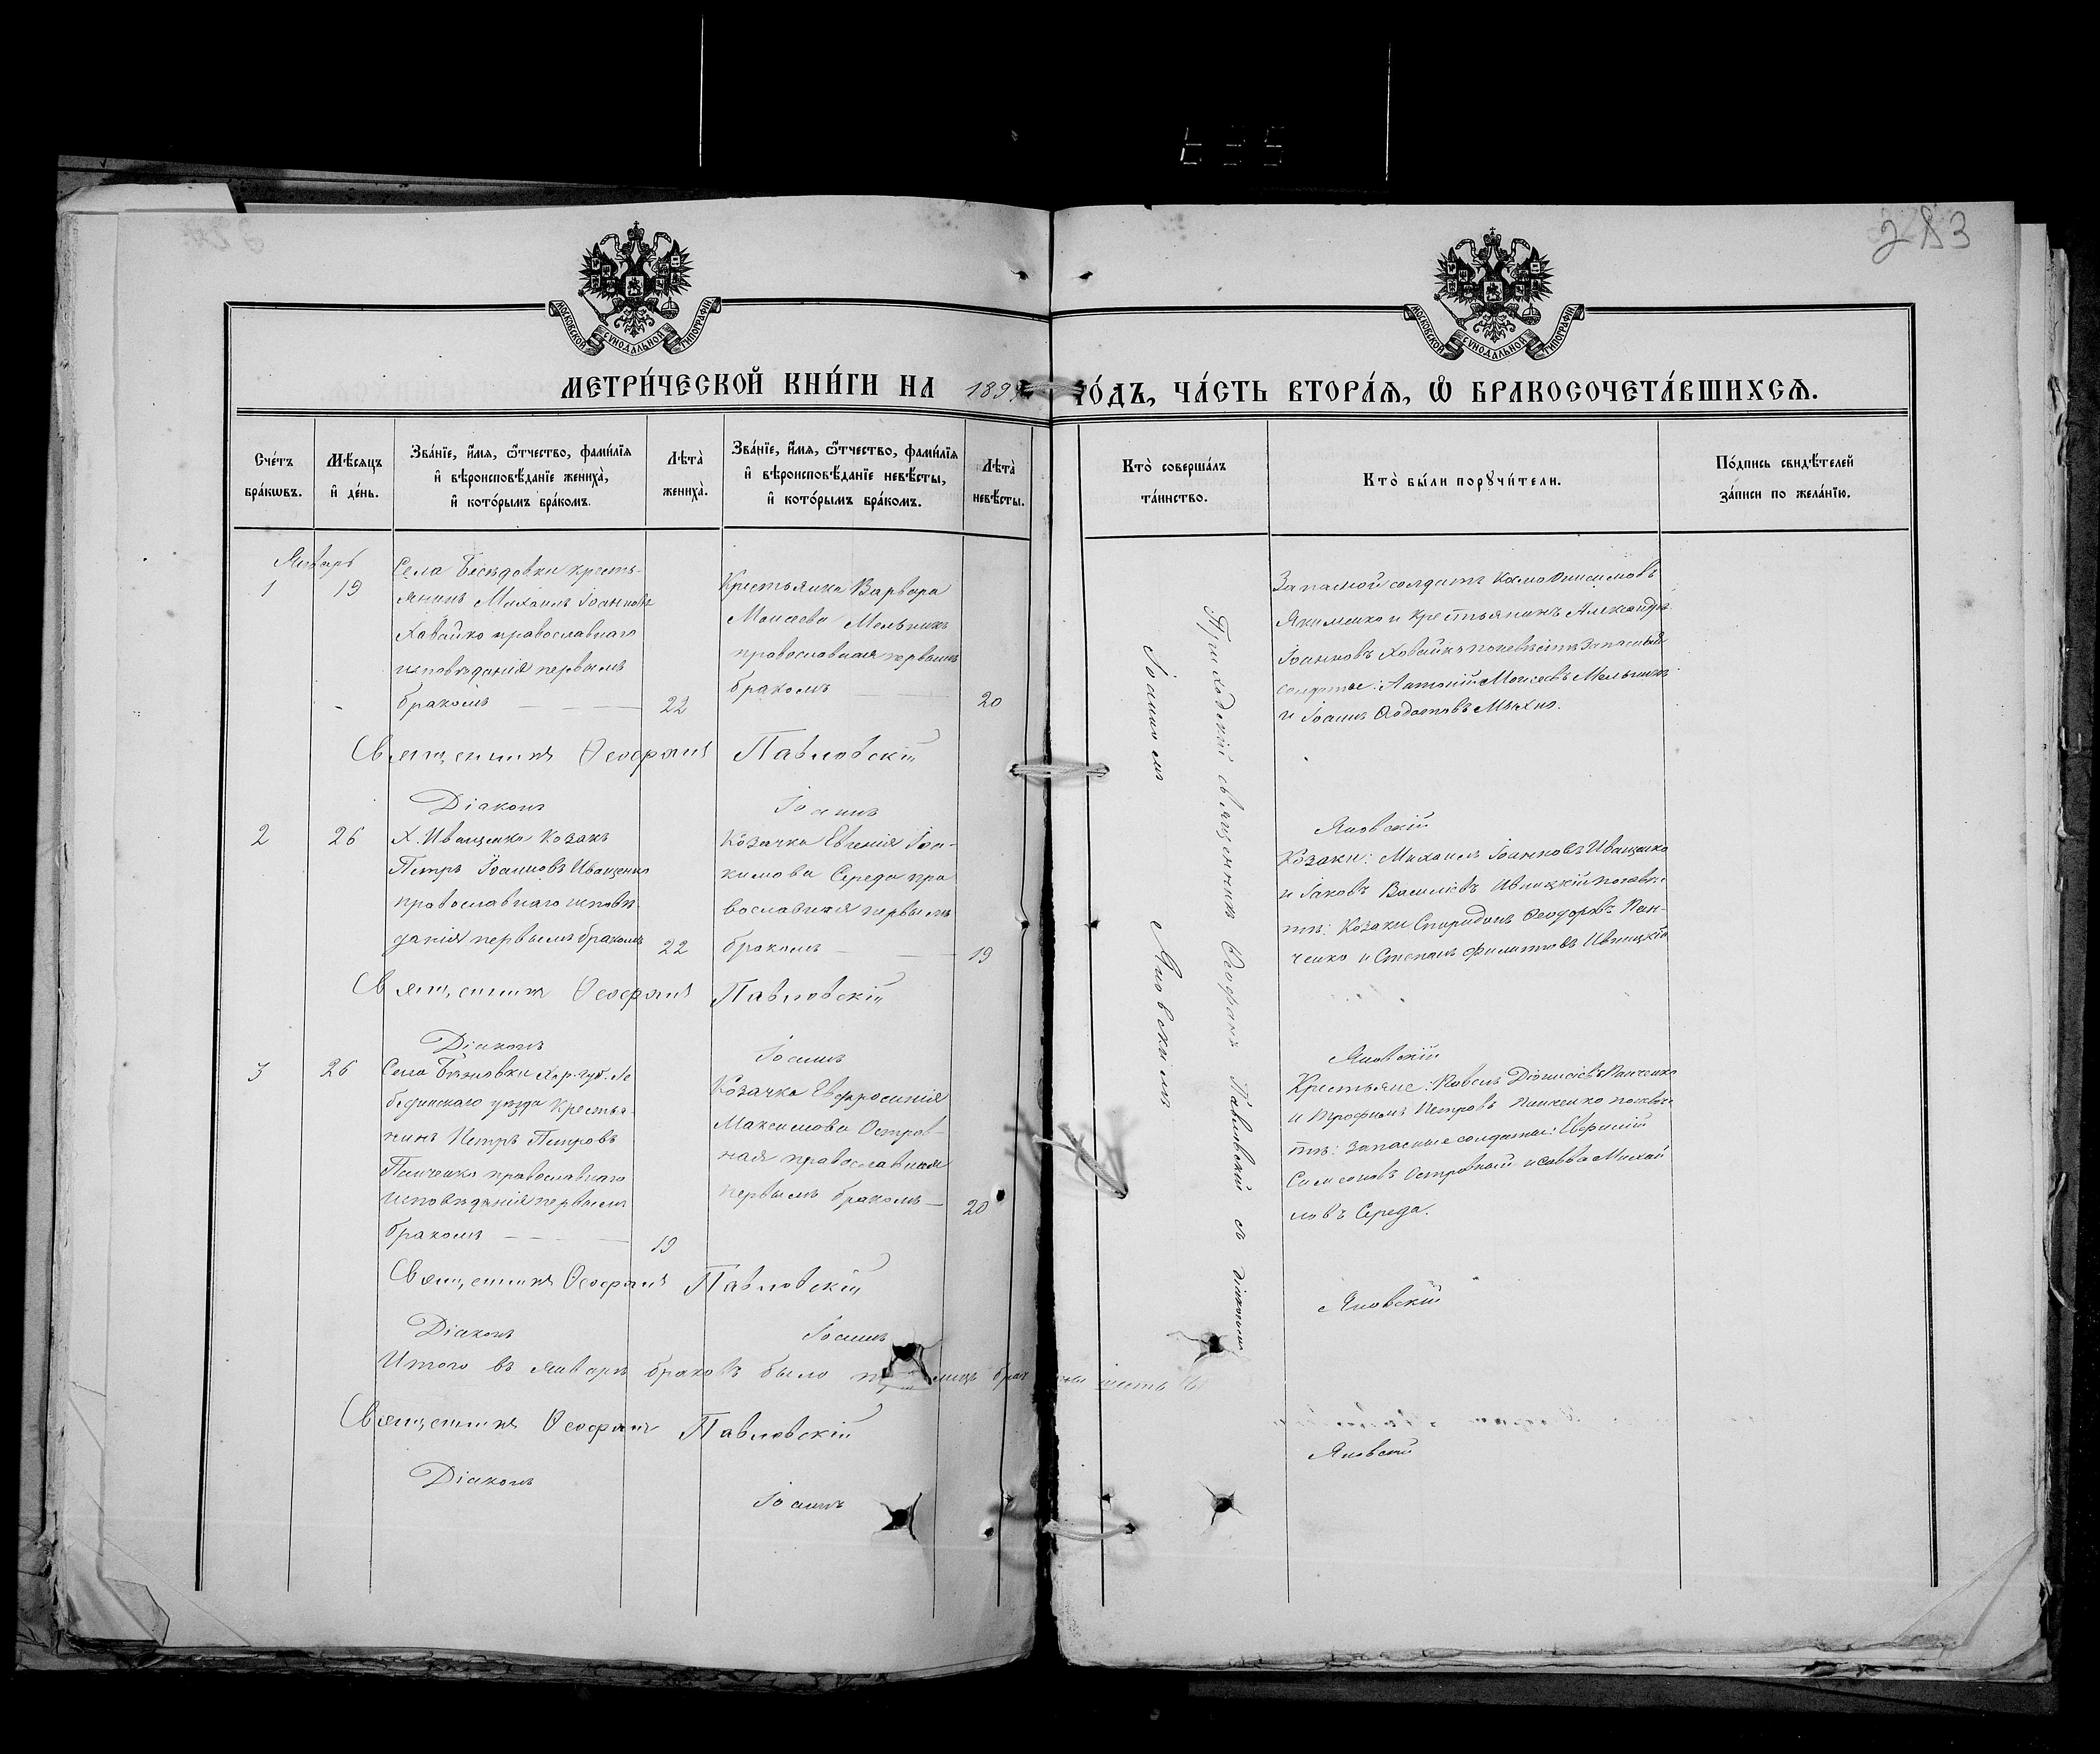 283
МОСКОВСКОЙ СѴНОДАЛЬНОЙ ТИПОГРАФІИ
МОСКОВСКОЙ СѴНОДАЛЬНОЙ ТИПОГРАФІИ
МЕТРИ́ЧЕСКОЙ КНИ́ГИ НА 189 ГО́ДЪ, ЧА́СТЬ ВТОРА́Я, Ѡ҆ БРАКОСОЧЕТА́ВШИХСЯ.
Сче́тъ бра́кѡвъ.
Мѣ́сяцъ и҆ де́нь.
Зва́нїе, и҆́мя, ѻ҆́тчество, фами́лїя
и҆ вѣроисповѣ́данїе жениха̀,
и҆ кото́рымъ бра́комъ.
Лѣта̀ жениха̀.
Зва́нїе, и҆́мя, ѻ҆́тчество, фами́лїя
и҆ вѣроисповѣ́данїе невѣ́сты,
и҆ кото́рымъ бра́комъ.
Лѣта̀ невѣ́сты.
Кто̀ соверша́лъ
та́инство.
Кто̀ бы́ли порꙋчи́тели.
По́дпись свидѣ́телей
за́писи по жела́нїю.
Январь
1
19
Села Бесѣдовки кресть-
янинъ Михаилъ Іоанновъ
Ховайко православнаго
исповѣданія первымъ
бракомъ
22
Крестьянка Варвара
Моисеева Мельникъ
православная первымъ
бракомъ
20
Запасной солдатъ Косма Онисимовъ
Якименко и Крестьянинъ Александръ
Іоанновъ Ховайко по невѣстѣ Запасные
солдаты: Антоній Моисеевъ Мельникъ
и Іоаннъ Ѳодотовъ Михно.
Священникъ Ѳеофанъ Павловскій
Діаконъ Іоаннъ Яновскій
2
26
Х. Иващенко Козакъ
Петръ Іоанновъ Иващенко
православнаго исповѣ-
данія первымъ бракомъ
22
Козачка Евгенія Іоа-
кимова Середа пра
вославная первымъ
бракомъ
19
Козаки: Михаилъ Іоанновъ Иващенко
и Іаковъ Василіевъ Ивницкій по невѣс-
тѣ: Козаки Спиридонъ Ѳеодоровъ Пан-
ченко и Стефанъ Филипповъ Ивницкій
Священникъ Ѳеофанъ Павловскій
Діаконъ Іоаннъ Яновскій
3
26
Села Бѣжовки Хар. губ. Ле
бединскаго уѣзда Крестья-
нинъ Петръ Петровъ
Панченко православнаго
исповѣданія первымъ
бракомъ
19
Козачка Евфросинія
Максимова Остров-
ная православная
первымъ бракомъ
20
Крестьяне: Павелъ Діонисіевъ Панченко
и Трофимъ Петровъ Панченко по невѣс
тѣ: Запасные солдаты: Евфимій
Симеоновъ Островный и Савва Михай
ловъ Середа.
Приходскій священникъ Ѳеофанъ Павловскій съ діакономъ
Іоанномъ Яновскимъ
Священникъ Ѳеофанъ Павловскій
Діаконъ Іоаннъ Яновскій
Итого въ Январѣ браковъ было шесть
Священникъ Ѳеофанъ Павловскій
Діаконъ Іоаннъ Яновскій